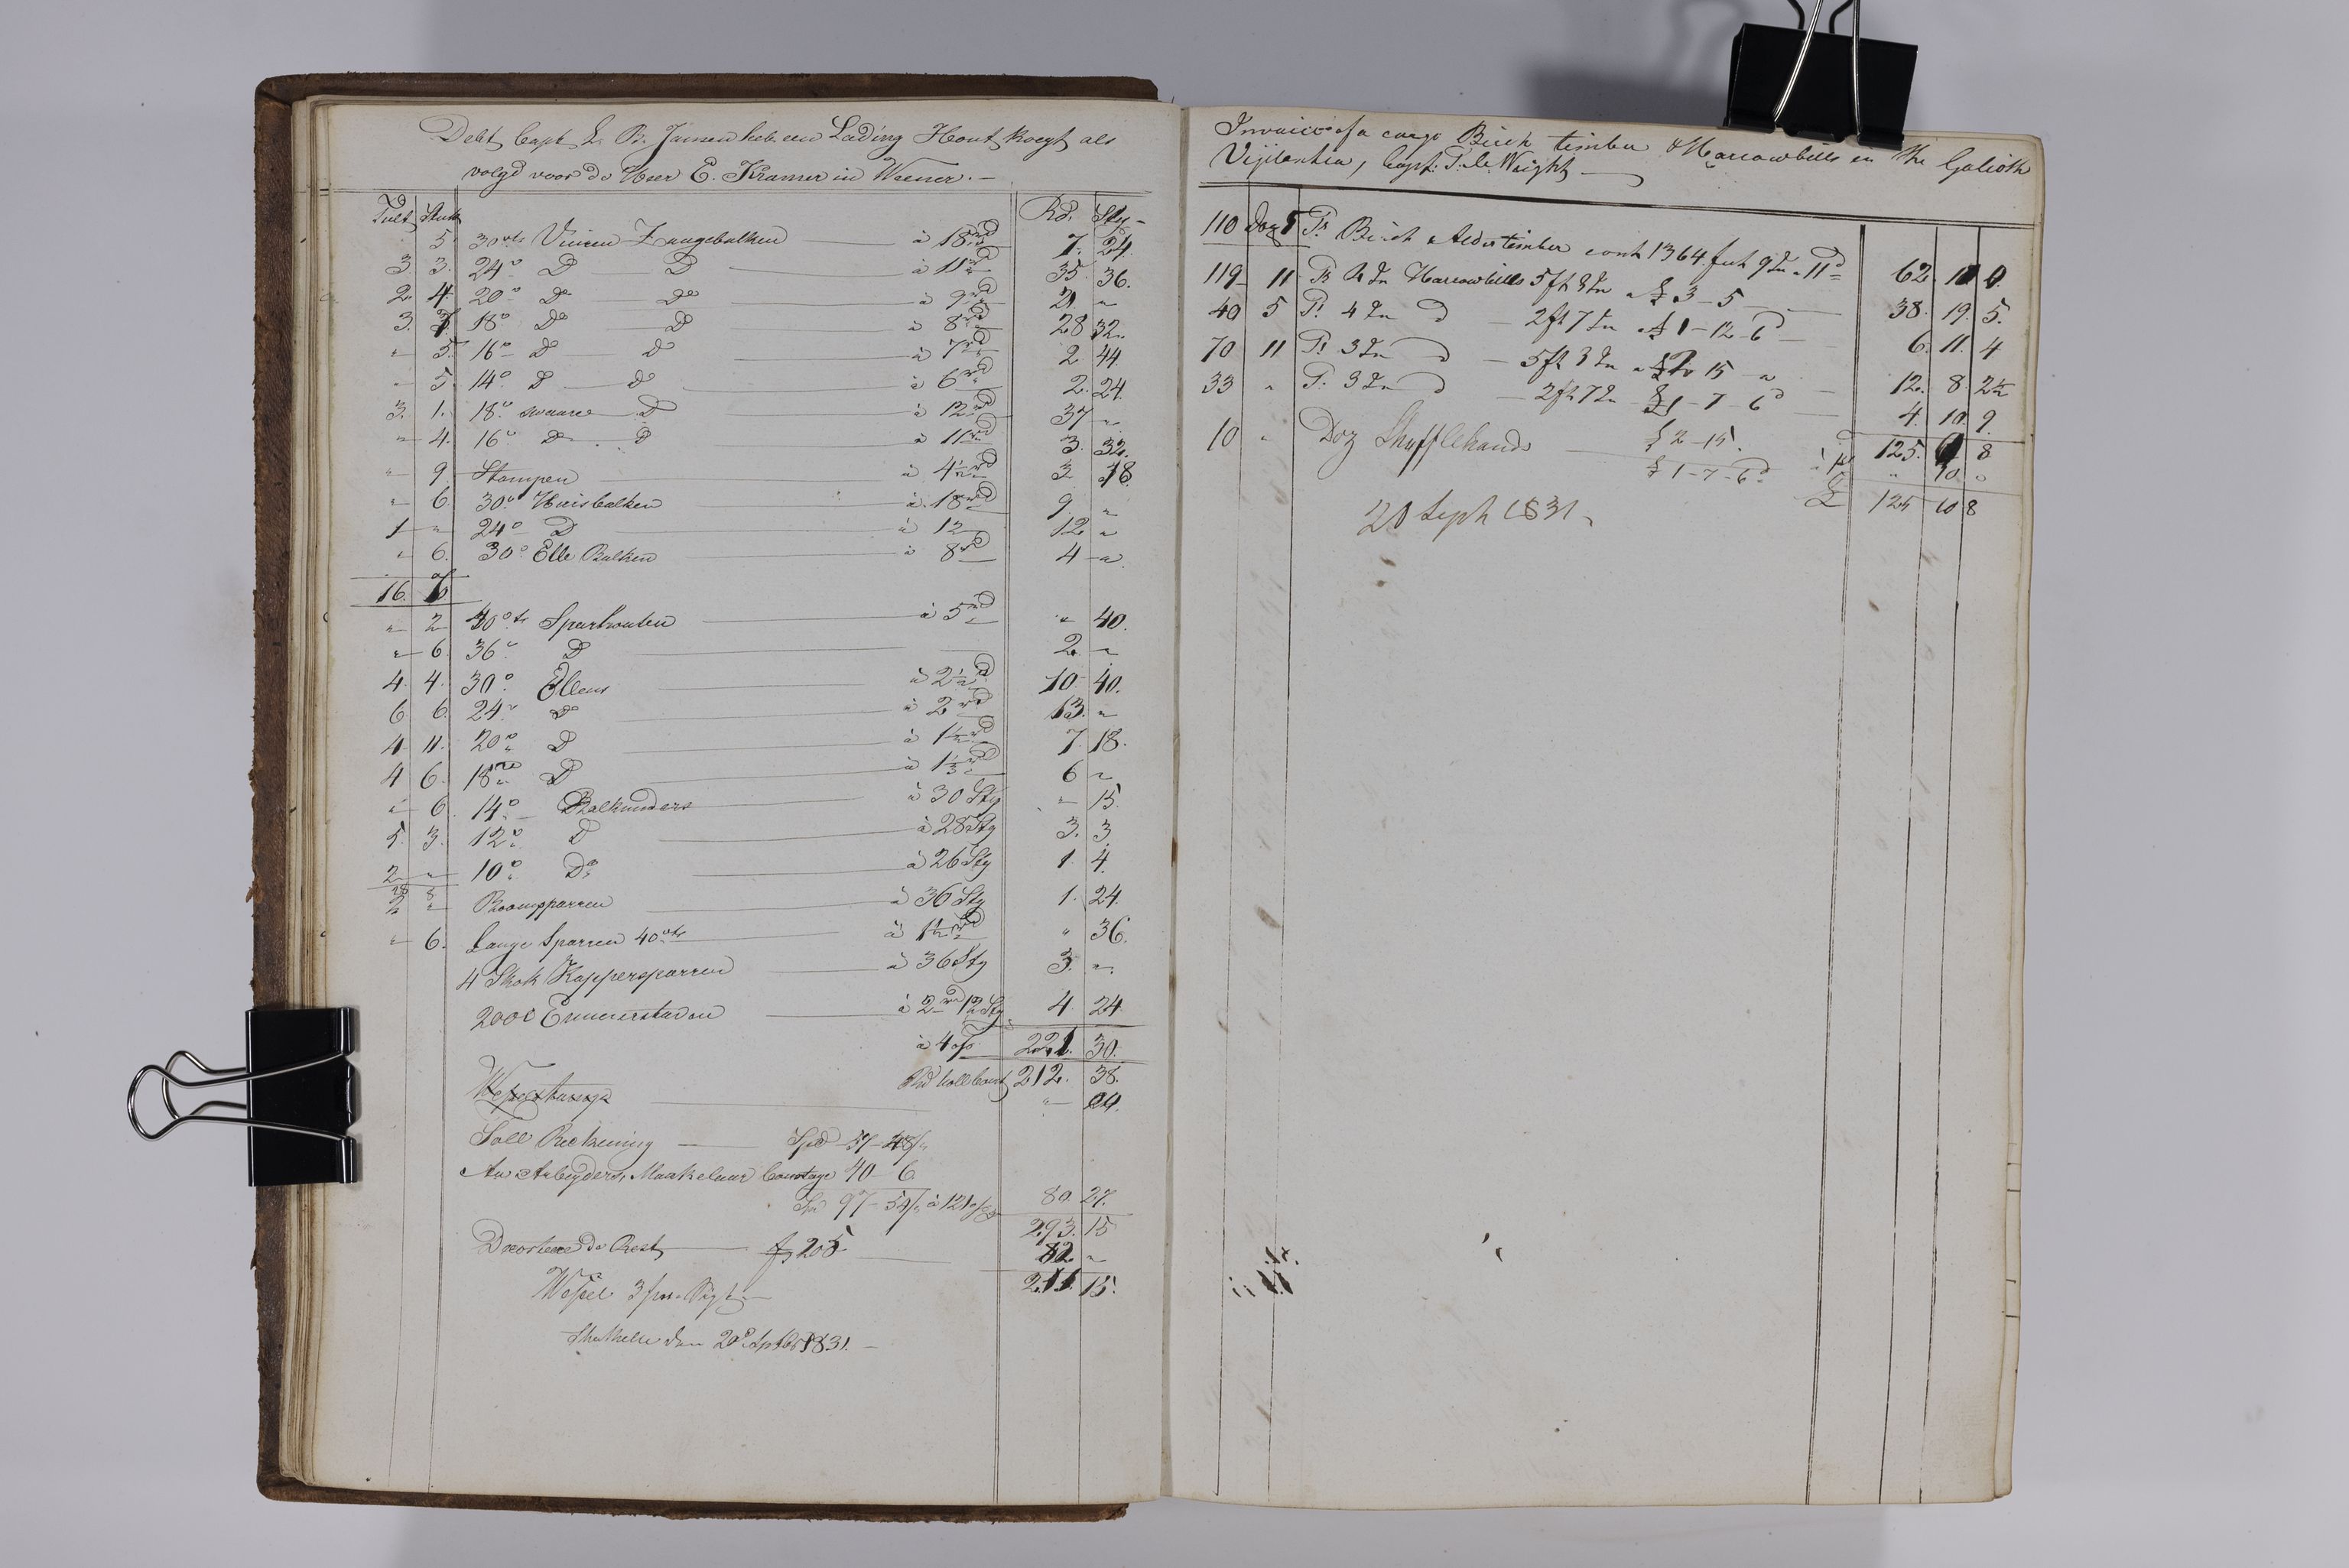 Debt Capt L. B. Jansen heb een Lading Hout koegt als
volgd voor de Heer E. Kramer in Weener. —
Tult Stuk Rd. Sty
5. 30 vts Vuuren Langebalken — à 18 rd 7. 24.
3. 3. 24 D — D — à 11 rd 35. 36.
2. 4. 20 Do Do — à 9 rd 21 "
3. 7 18 Do D — à 8 rd 28 32.
" 5. 16 D — D — à 7 rd 2 44.
" 5. 14 D — Do — à 6 rd 2. 24.
3. 1. 18 swaare D — à 12 rd 37 "
" 4. 16 D D — à 11 rd 3. 32.
" 9. Stampen — à 4½ rd 3 18
" 6. 30 Huisbalken — à 18 rd 9. "
1 " 24 D — à 12 12 "
" 6. 30 Elle Balken — à 8 rd 4 "
16. 6
" 2 40 Sparhouten — à 5 rd " 40.
" 6. 36 D — 2. "
4. 4. 30 Ellens — à 2½ rd 10 40.
6 6. 24 D — à 2 rd 13. "
4 11. 20 D — à 1½ rd 7. 18.
4 6. 18 D — à 1⅓ rd 6 "
" 6. 14 Balkunders — à 30 Sty " 15.
5. 3. 12 D — à 28 Sty 3. 3
2 " 10 Do — à 26 Sty 1. 4.
28 8
2 " Boomsparren — à 36 Sty 1. 24.
" 6. Lange Sparren 40 — à 1½ rd " 36.
4 Skok Kappersparren — à 36 Sty 3. "
2000 Emmerstaven — à 2 rd 12 Sty 4. 24
à 4 o/o 221. 30.
Rd Holl Court 212. 38.
— " 24.
Toll Reckening — Spd 57 - 48/"
An Arbeyders, Maakelaar Courtage 40 - 6
Spd 97 - 54/ à 121 80. 27.
293. 15
de Rest — f 205 — 82. "
211. 15.
Wessel 3
den 20 Septbr 1831. —
Invoice of a cargo Birch timber & Harrowbills in the Galioth
Vijilantia, Capt: T. C. Wright —
110 Doz 5 Ps Birch & Alder timber cont 1364 feet 9 In a 11d 62. 11 0
119 11 Ps 4 In Harrowbills 5 ft 3 In a £ 3 - 5 — 38. 19. 5.
40 5 Ps 4 In D — 2 ft 7 In a £ 1 - 12 - 6 — 6. 11. 4
70 11 Ps 3 In D — 5 ft 3 In a £ 15 " — 12. 8. 2½
33 " Ps 3 In D — 2 ft 7 In £ 1 - 7 - 6 — 4. 10. 9.
10 " Doz Shufflehands £ 2 - 15. 125. 0 8
£ 1 - 7 - 6d " 10 "
£ 125 10 8
20 Septr 1831